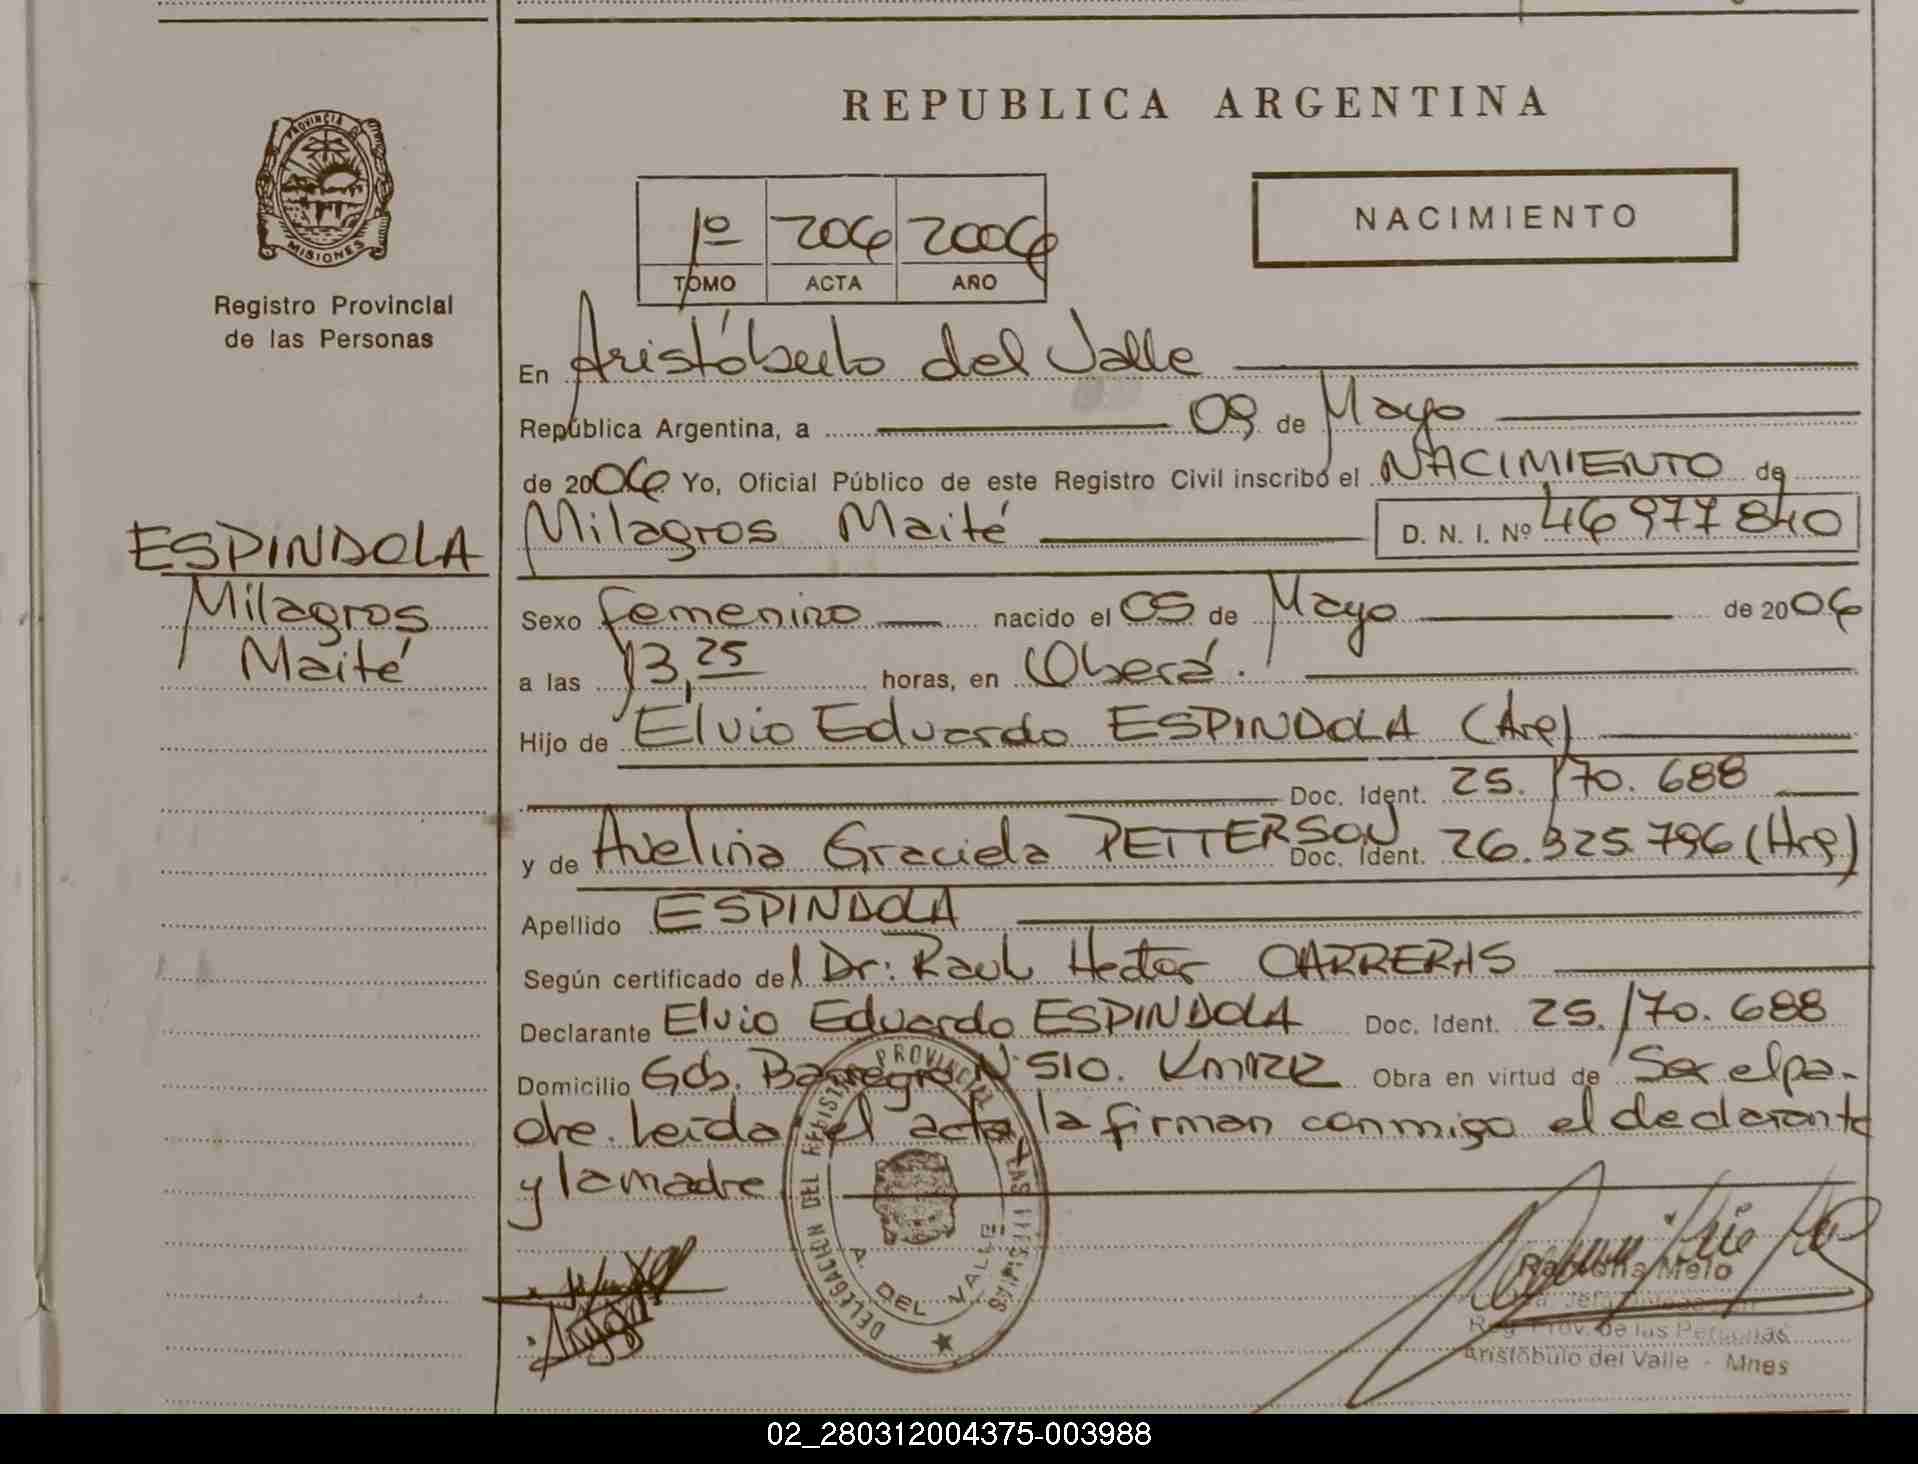 REPUBLICA ARGENTINA
PROVINCIA D
MISIONES
Registro Provincial
de las Personas
NACIMIENTO
1º 206 2006
TOMO ACTA AÑO
En Aristóbulo del Valle
República Argentina, a 09 de Mayo
de 2006 Yo, Oficial Público de este Registro Civil inscribo el NACIMIENTO de
Milagros Maité D. N. I. Nº 46977840
ESPINDOLA
Milagros
Maité
Sexo femenino nacido el 05 de Mayo de 2006
a las 13,25 horas, en Oberá.
Hijo de Elvio Eduardo ESPINDOLA (Arg)
Doc. Ident. 25.170.688
y de Avelina Graciela PETTERSON Doc. Ident. 26.325.796 (Arg)
Apellido ESPINDOLA
Según certificado del Dr: Raul Hector CARRERAS
Declarante Elvio Eduardo ESPINDOLA Doc. Ident. 25.170.688
Domicilio Gdo. Obra en virtud de Ser el pa-
dre. Leída el acta, la firman conmigo el declarante
y la madre
DELEGACION DEL REGISTRO PROVINCIAL DE LAS PERSONAS
A. DEL VALLE
Ramona Melo
Reg. Prov. de las Personas
Aristóbulo del Valle - Mnes
02_280312004375-003988